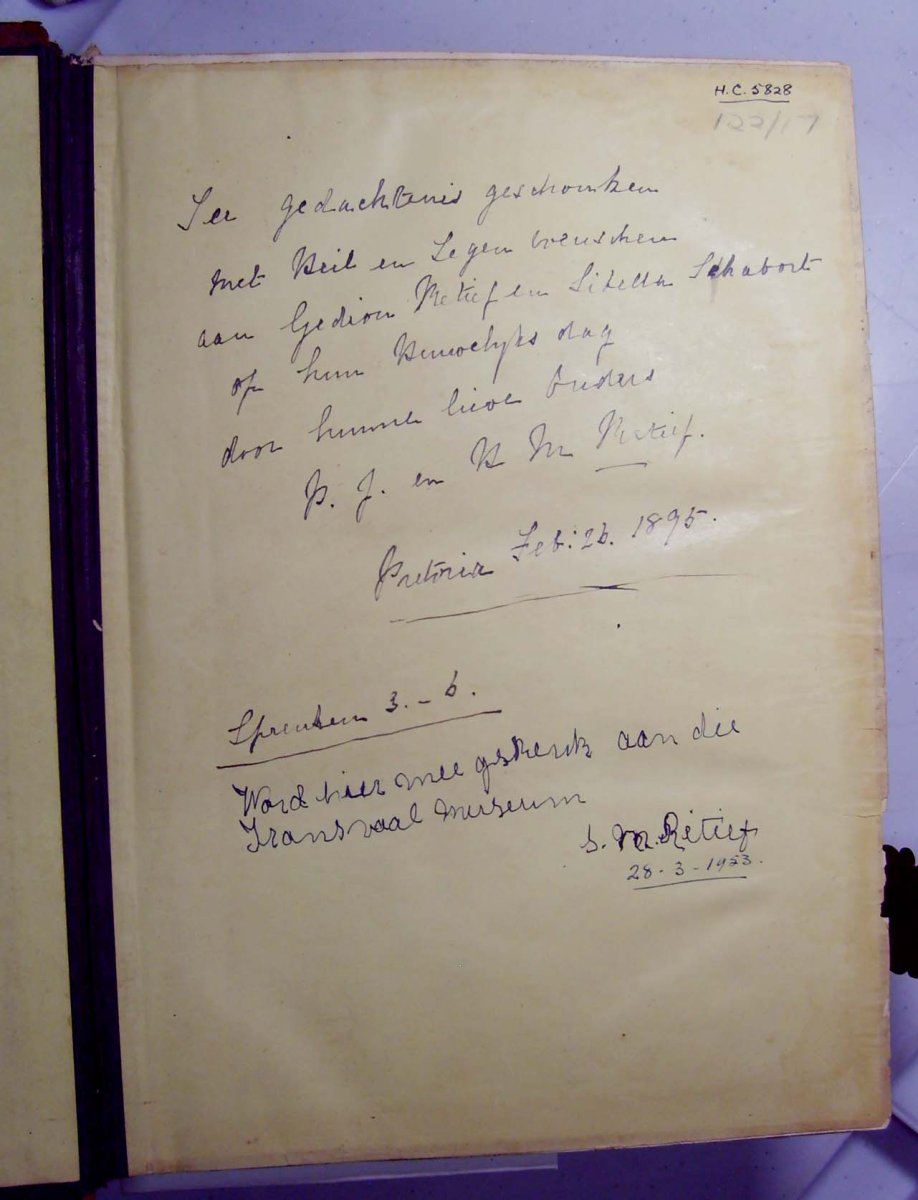 H.C. 5828
122/17
Ter gedachtenis geschonken
met Heil en Zegen wenschen
aan Gedion Retief en Schabort
op hun Huwelijks dag
door hunne lieve Ouders
P. J. en H M Retief.
Pretoria Feb: 26. 1895.
Spreuken 3. - 6.
Word hier mee geskenk aan die
Transvaal Museum
S. M. Retief
28 - 3 - 1953.